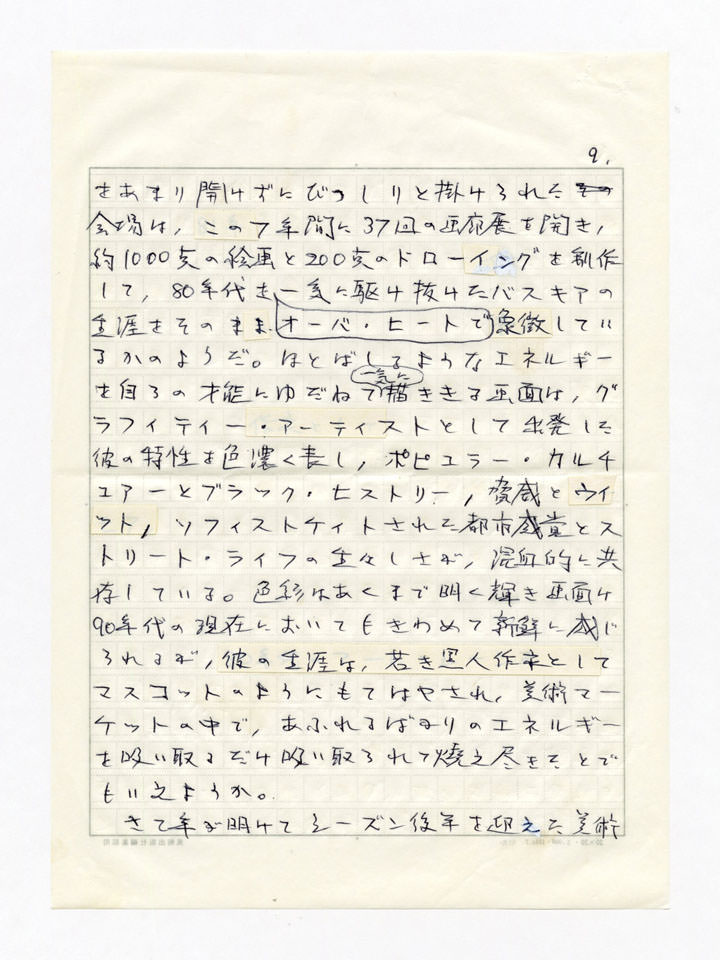 9.
をあまり開けずにびっしりと掛けられた
会場は，この7年間に37回の画廊展を開き，
約1000支の絵画と200支のドローイングを制作
して，80年代を一気に駆け抜けたバスキアの
生涯をそのままオーバ・ヒートで象徴してい
るかのようだ。ほとばしるようなエネルギー
一気に
を自らの才能にゆだねて描ききる画面は，グ
ラフィティー・アーティストとして出発した
彼の特性を色濃く表し，ポピュラー・カルチ
ュアーとブラック・ヒストリー，脅威とウイ
ット，ソフィストケイトされた都市感覚とス
トリート・ライフの生々しさが，混血的に共
存している。色彩はあくまで明く輝き画面は
90年代の現在においてもきわめて新鮮に感じ
られるが，彼の生涯は，若き黒人作家として
マスコットのようにもてはやされ，美術マー
ケットの中で，あふれるばかりのエネルギー
を吸い取るだけ吸い取られて燃え尽きたとで
もいえようか。
さて年が明けてシーズン後半を迎えた美術
20×20